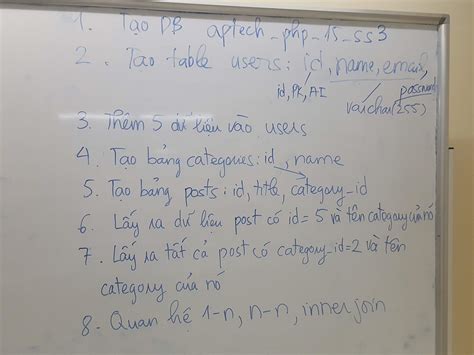 1. Tạo DB aptech_php_15_ss3
2. Tạo table users: id, name, email, password
id, PK, AI
varchar(255)
3. Thêm 5 dữ liệu vào users
4. Tạo bảng categories: id, name
5. Tạo bảng posts: id, title, category_id
6. Lấy ra dữ liệu post có id = 5 và tên category của nó
7. Lấy ra tất cả post có category_id = 2 và tên
category của nó
8. Quan hệ 1-n, n-n, inner join